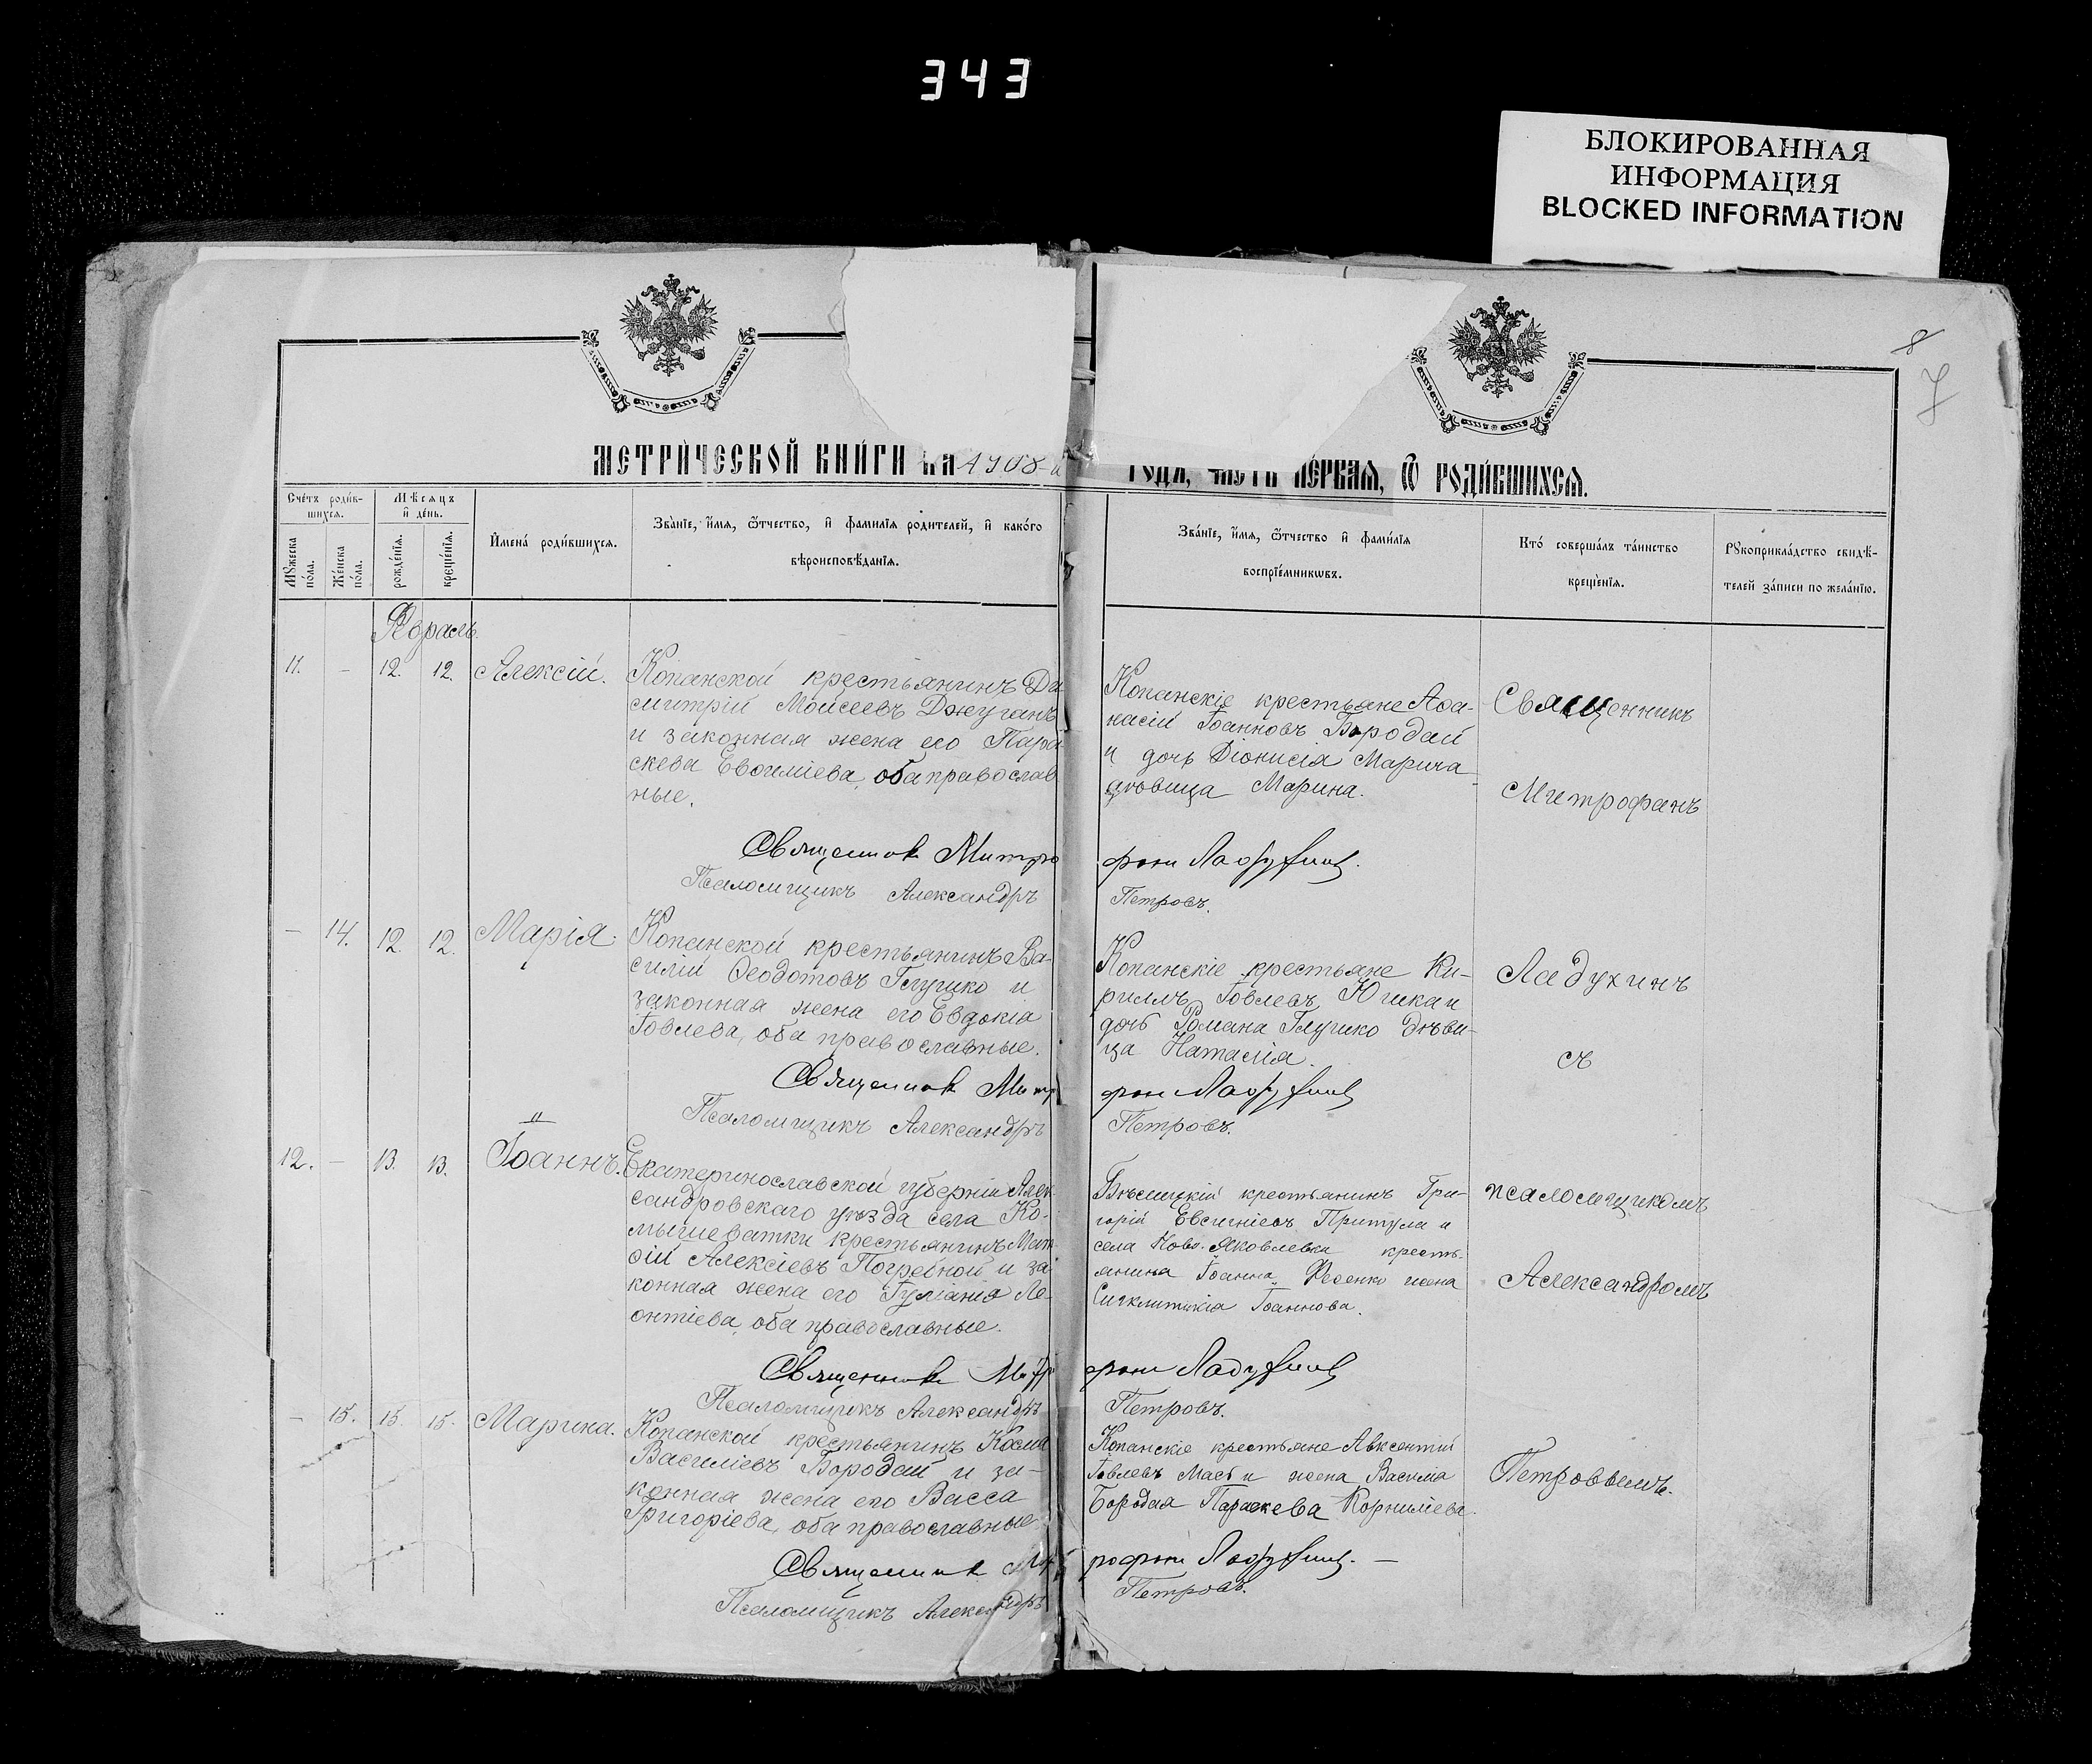 343
БЛОКИРОВАННАЯ
ИНФОРМАЦИЯ
BLOCKED INFORMATION
8
7
МЕТРИ́ЧЕСКОЙ КНИ́ГИ НА 1908-й
ГОДЪ, ЧАСТЬ ПЕ́РВАЯ, Ѿ РОДИ́ВШИХСЯ.
Сче́тъ роди́в-
шихся.
Мꙋжеска по́ла.
Же́нска по́ла.
Мѣсяцъ
и де́нь.
рожде́нїя.
креще́нїя.
Имена̀ роди́вшихся.
Зва́нїе, и́мя, ѻ́тчество, и фамилїя родителей, и како́го
вѣроисповѣданїя.
Зва́нїе, и́мя, ѻ́тчество и фами́лїя
воспрїе́мниковъ.
Кто́ соверша́лъ та́инство
креще́нїя.
Рꙋкоприкла́дство свидѣ-
телей за́писи по жела́нїю.
Февраль.
11. – 12. 12. Алексій.
Копанской крестьянинъ Ди
митрій Моисеевъ Джуганъ
и законная жена его Пара
скева Евѳиміева, оба православ
ные.
Копанскіе крестьяне Аѳа-
насій Іоанновъ Бородай
и дочь Діонисія Марича
дѣвица Марина.
Священникъ
Митрофанъ
Священник Митро
фан Ладухин.
Псаломщикъ Александръ
Петровъ.
– 14. 12. 12. Марія.
Копанской крестьянинъ Ва-
силій Ѳеодотовъ Глушко и
законная жена его Евдокія
Іовлева, оба православные.
Копанскіе крестьяне Ки-
риллъ Іовлевъ Юшка и
дочь Романа Глушко дѣви-
ца Наталія.
Ладухинъ
съ
Священник Митр
фан Ладухин
Псаломщикъ Александръ
Петровъ.
12. – 13. 13. Іоаннъ.
Екатеринославской губерніи Алек
сандровскаго уѣзда села Ко-
мышеватки крестьянинъ Мат
ѳій Алексіевъ Погребной и за
конная жена его Іуліанія Ле-
онтіева, оба православные.
крестьянинъ Гри-
горій Евсигніевъ Притула и
села Ново-Яковлевки кресть-
янина Іоанна жена
Синклитикія Іоаннова.
псаломщикомъ
Александромъ
Священник Митр
фан Ладухин
Псаломщикъ Александръ
Петровъ.
– 15. 15. 15. Марина.
Копанской крестьянинъ Косма
Василіевъ Бородай и за-
конная жена его Васса
Григоріева, оба православные
Копанскіе крестьяне Авксентій
Іовлевъ и жена Василія
Бородая Параскева Корниліева.
Петровымъ.
Священник Мит
рофан Ладухин. –
Псаломщикъ Александръ
Петровъ.